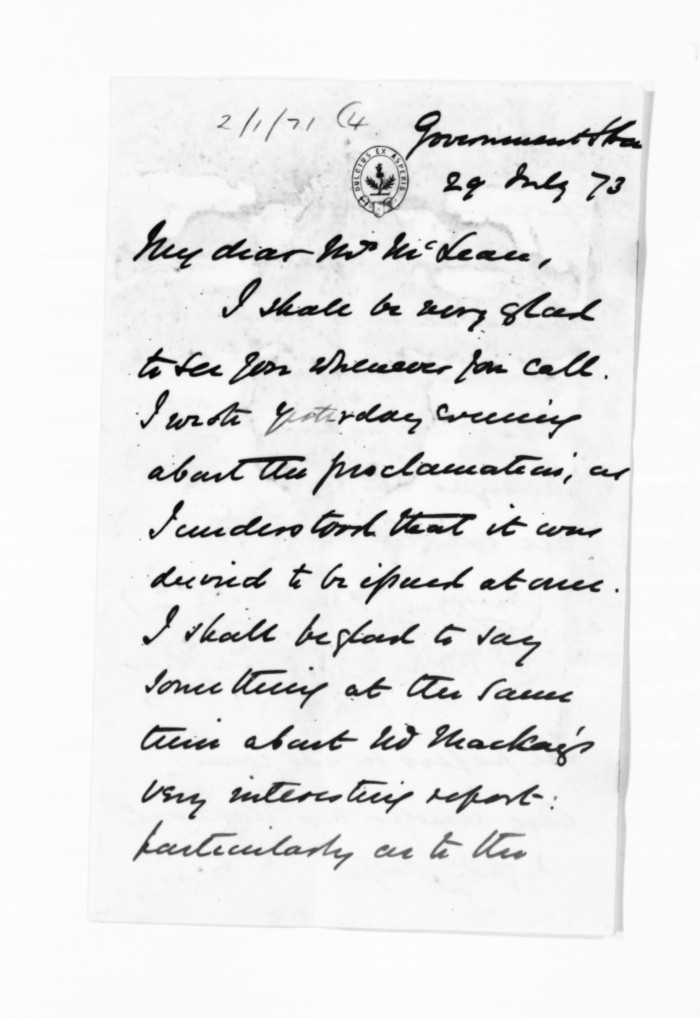 2/1/71 (4.
Government House
DULCIUS EX ASPERIS
29 July 73
My dear Mr McLean,
I shall be very glad
to see you whenever you call.
I wrote yesterday evening
about the proclamation, as
I understood that it was
desired to be issued at once.
I shall be glad to say
something at the same
time about Mr Mackay's
very interesting report:
particularly as to the